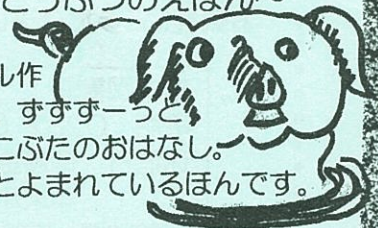 どうぶつのえほん
ル作
ずずずーっと
こぶたのおはなし。
とよまれているほんです。